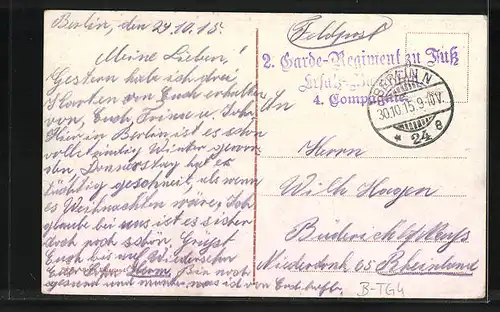 Berlin, den 29.10.15.
Meine Lieben!
Gestern habe ich drei
Karten von Euch erhalten
von, Euch, Trina u. Joh.
Hier in Berlin ist es schon
vollständig Winter gewor-
den. Donnerstag hat es
tüchtig geschneit, als wenn
es Weihnachten wäre. Ich
glaube bei uns ist es sicher
doch noch schön. Grüßt
Euch bis auf Wiedersehn
Euer Herm. Bin noch
gesund und munter, was ich von Euch hoffe.
Feldpost
2. Garde-Regiment zu Fuß
Ersatz-
4. Compagnie
BERLIN N
30.10.15.9-10V.
* 24 e
An
Herrn
Wilh Hagen
Büderich
Niederdonk 65 Rheinland
B-TG4